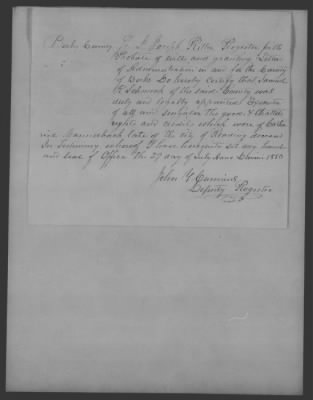 Berks County SS I Joseph Ritter Register for the
Probate of wills and granting Letters
of Administration in and for the County
of Berks Do hereby certify that Samuel
of the said County was
duly and legally appointed Executor
of all and singular the goods & Chattels
rights and credits which were of
late of the City of Reading deceased
In Testimony whereof I have hereunto set my hand
and seal of Office the 29 day of July Anno Domini 1850
John
Deputy Register